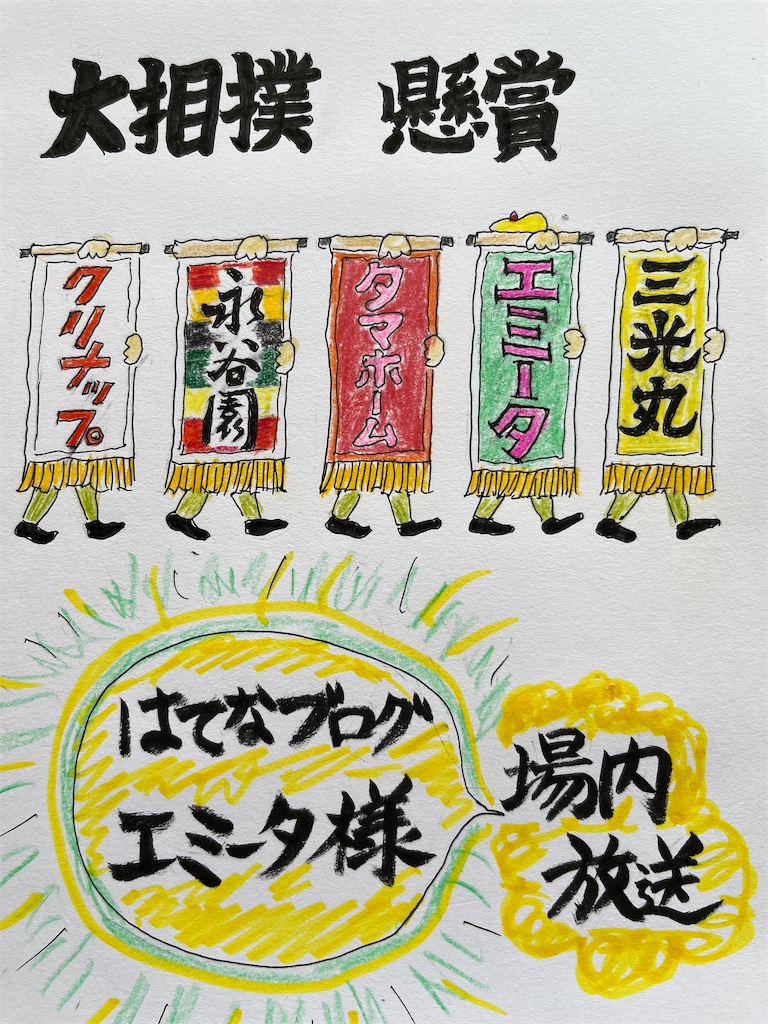 大相撲 懸賞
クリナップ
永谷園
タマホーム
エミータ
三光丸
はてなブログ
エミータ様
場内
放送